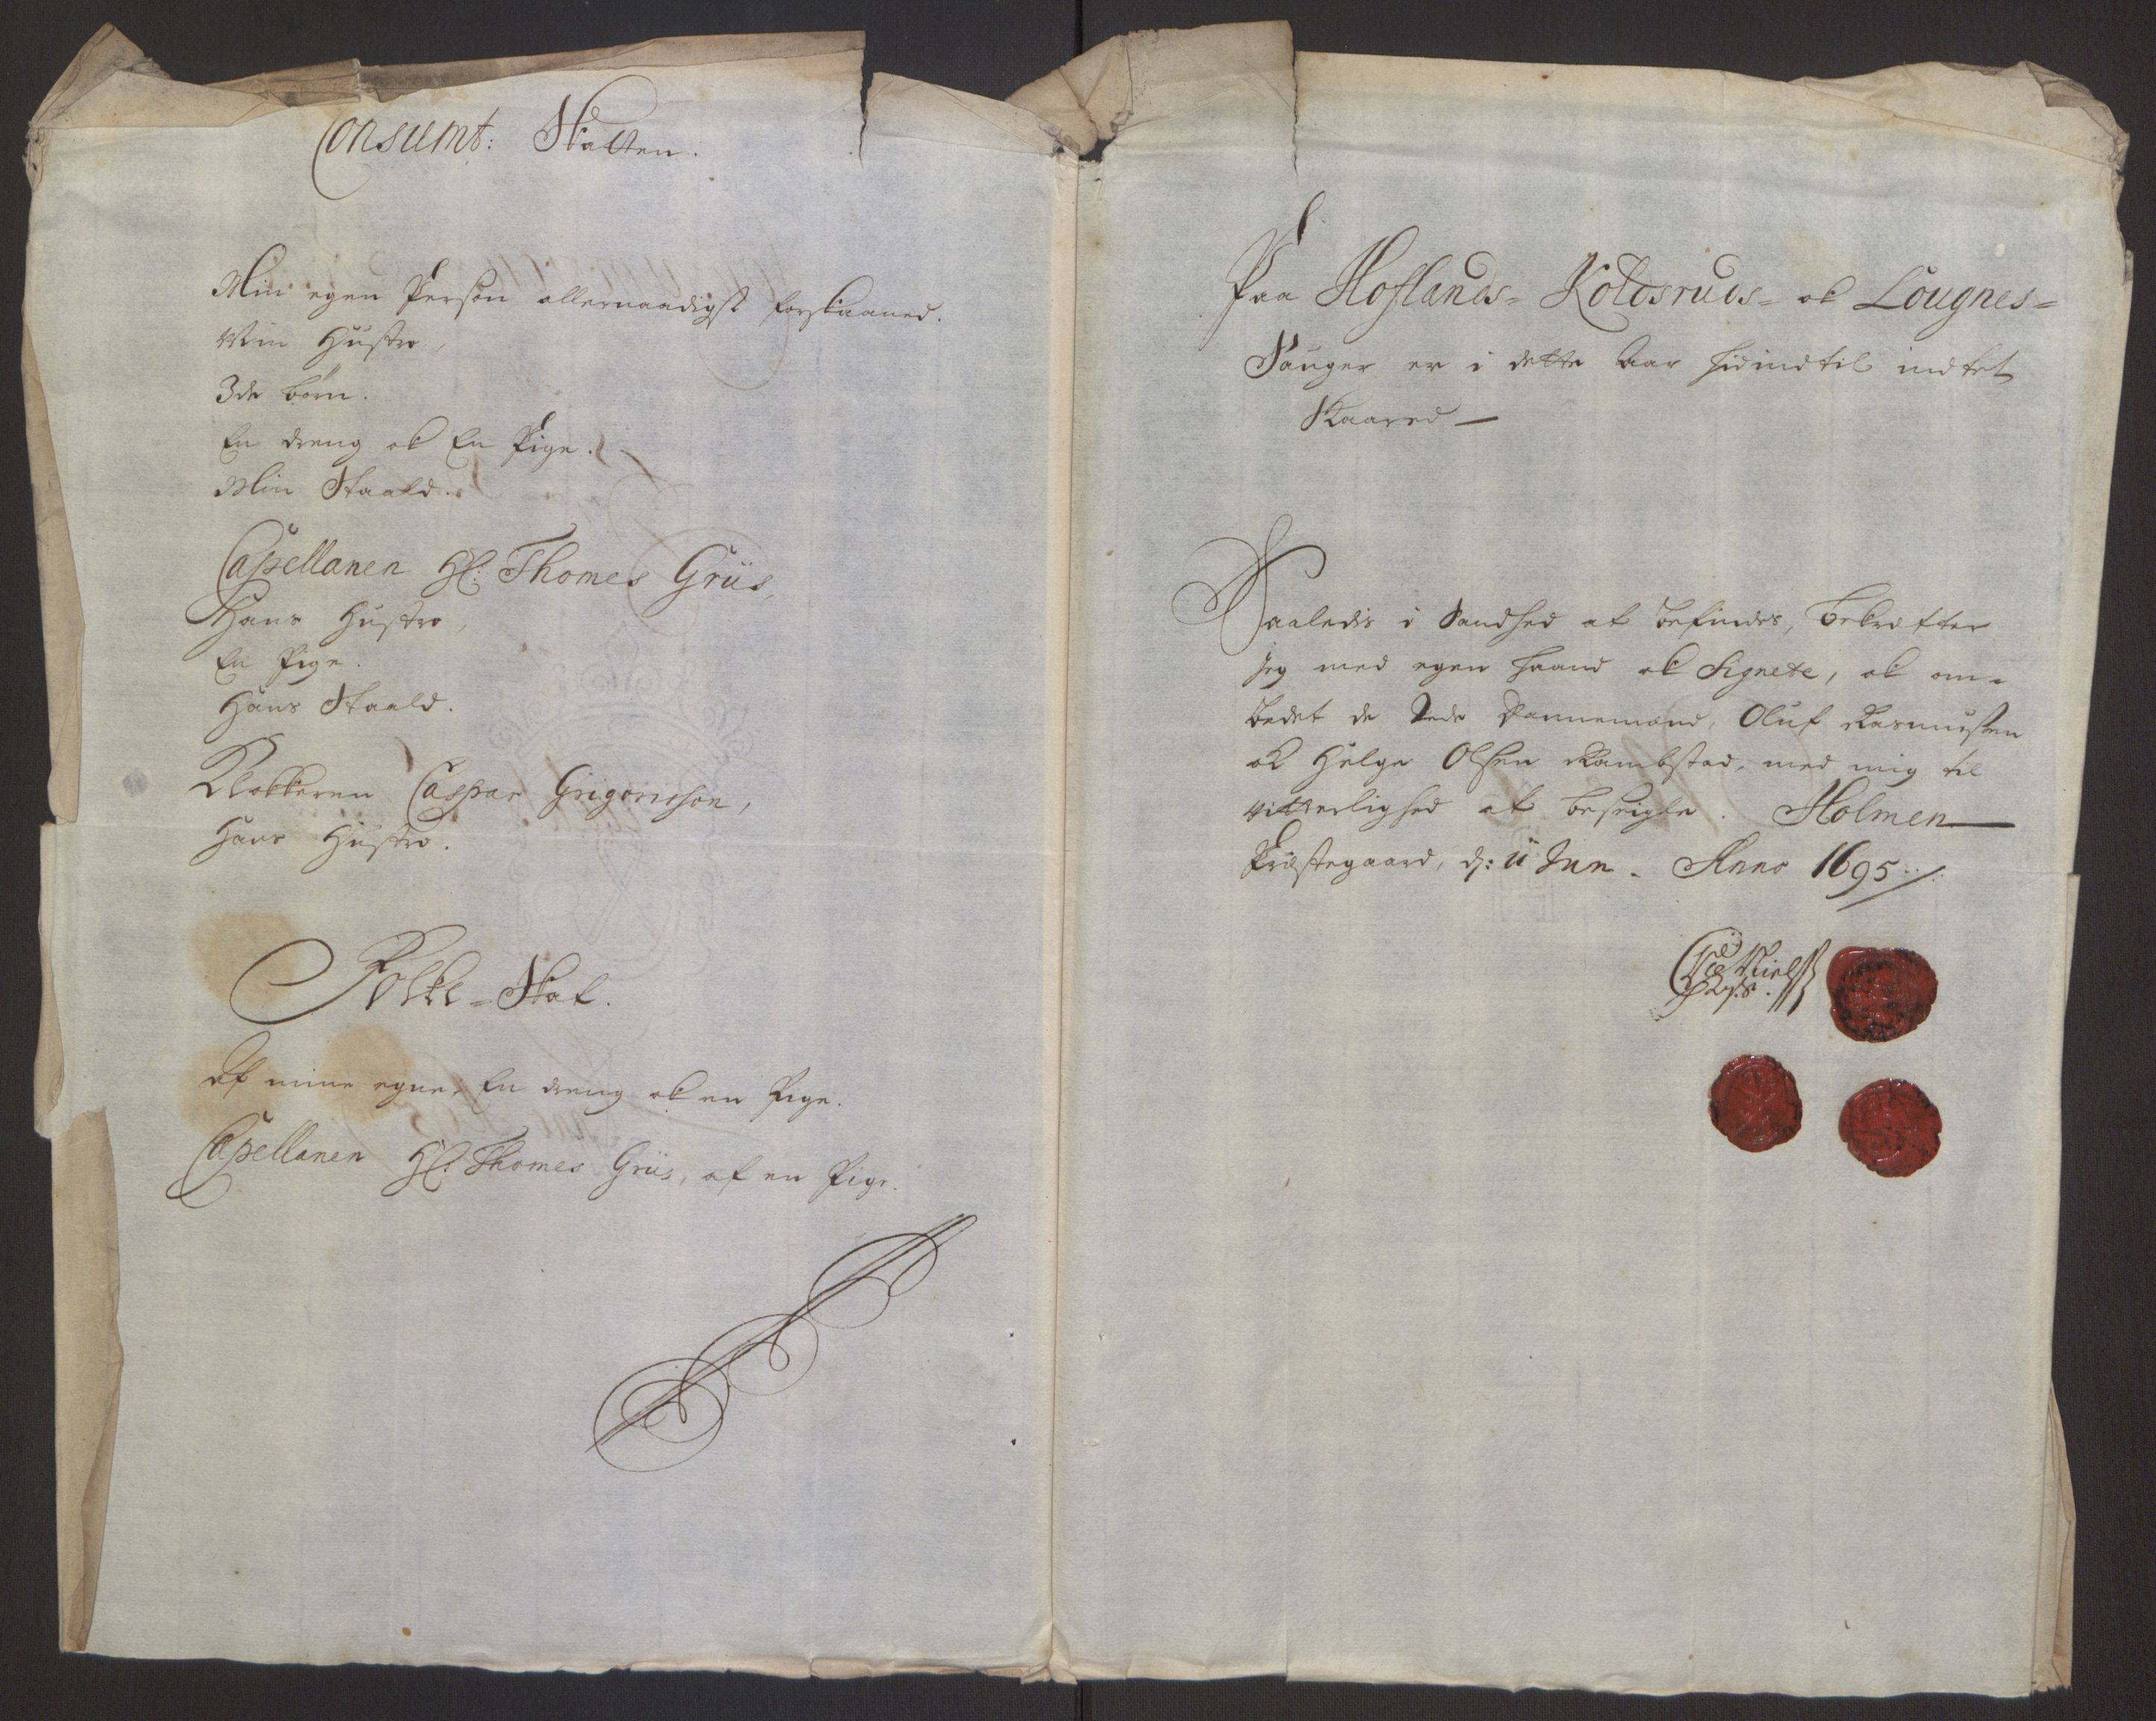 Consumt: Skatten.
Min egen Person allernaadigst forskaaned.
Min Hustro,
3de børn.
En dreng ok En Pige.
Min Staald.
Capellanen Hl: Thomes Griis,
Hans Hustro,
En Pige.
Hans Staald.
Klokkeren Caspar Grigorisson,
Hans Hustro.
Folke-Skat.
Af mine egne, En dreng ok en Pige.
Capellanen Hl: Thomes Griis, af en Pige.
Paa Hoflands- Koldsruds- ok Lougnes-
Sauger er i dette Aar hidindtil indtet
Skaared —
Saaledis i Sandhed at befindes, bekræfter
jeg med egen Haand ok Signete, ok om-
bedet de Dannemænd, Oluf Rasmussen
ok Helge Olsen Rambstad, med mig til
vitterlighed at beseigle. Holmen
Præstegaard, d: 11 Jun. Anno 1695